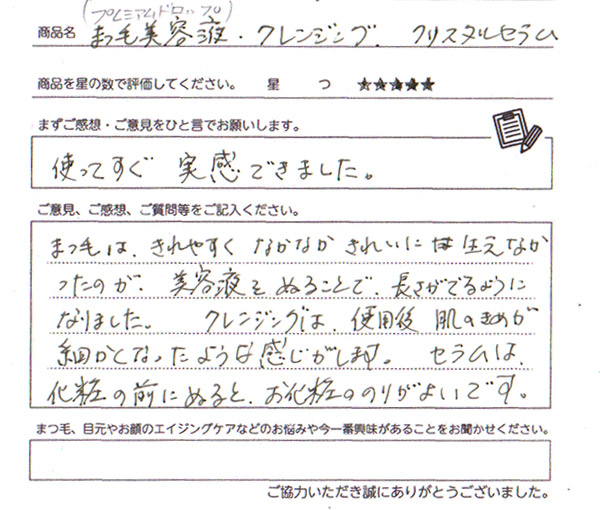 (プレミアムドロップ)
商品名 まつ毛美容液・クレンジング、クリスタルセラム
商品を星の数で評価してください。 星 つ ★★★★★
まずご感想・ご意見をひと言でお願いします。
使ってすぐ 実感できました。
ご意見、ご感想、ご質問等をご記入ください。
まつ毛は、きれやすく なかなか きれいには生えなか
ったのが、美容液を ぬることで、長さがでるように
なりました。 クレンジングは、使用後 肌のきめが
細かくなったような感じがします。 セラムは、
化粧の前にぬると、お化粧ののりがよいです。
まつ毛、目元やお顔のエイジングケアなどのお悩みや今一番興味があることをお聞かせください。
ご協力いただき誠にありがとうございました。